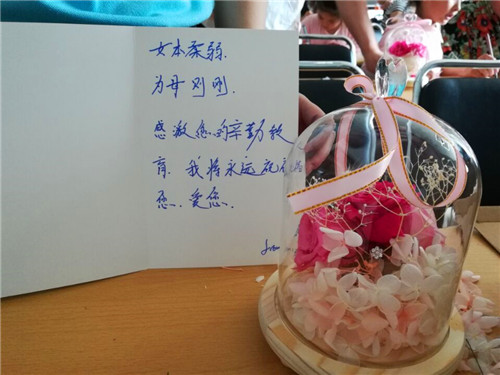 女本柔弱.
为母则刚.
感激您的辛勤教
育.我将永远祝
您.爱您.